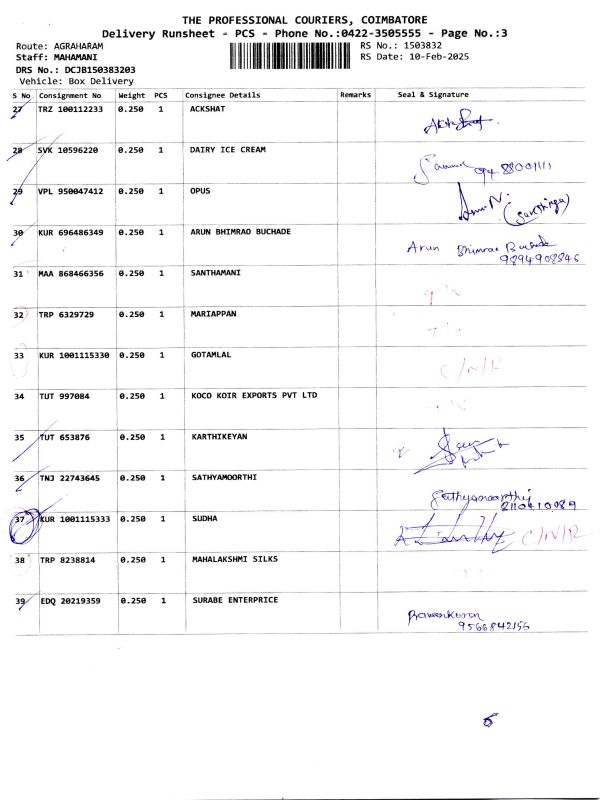 THE PROFESSIONAL COURIERS, COIMBATORE
Delivery Runsheet - PCS - Phone No.:0422-3505555 - Page No.:3
Route: AGRAHARAM RS No.: 1503832
Staff: MAHAMANI RS Date: 10-Feb-2025
DRS No.: DCJB150383203
Vehicle: Box Delivery
S No Consignment No Weight PCS Consignee Details Remarks Seal & Signature
27 TRZ 100112233 0.250 1 ACKSHAT
28 SVK 10596220 0.250 1 DAIRY ICE CREAM
29 VPL 950047412 0.250 1 OPUS
30 KUR 696486349 0.250 1 ARUN BHIMRAO BUCHADE Arun Bhimrao Buchade
9894908846
31 MAA 868466356 0.250 1 SANTHAMANI
32 TRP 6329729 0.250 1 MARIAPPAN
33 KUR 1001115330 0.250 1 GOTAMLAL C/N/R
34 TUT 997084 0.250 1 KOCO KOIR EXPORTS PVT LTD
35 TUT 653876 0.250 1 KARTHIKEYAN
36 TNJ 22743645 0.250 1 SATHYAMOORTHI Sathyamoorthi
37 KUR 1001115333 0.250 1 SUDHA C/N/R
38 TRP 8238814 0.250 1 MAHALAKSHMI SILKS
39 EDQ 20219359 0.250 1 SURABE ENTERPRICE
9566842156